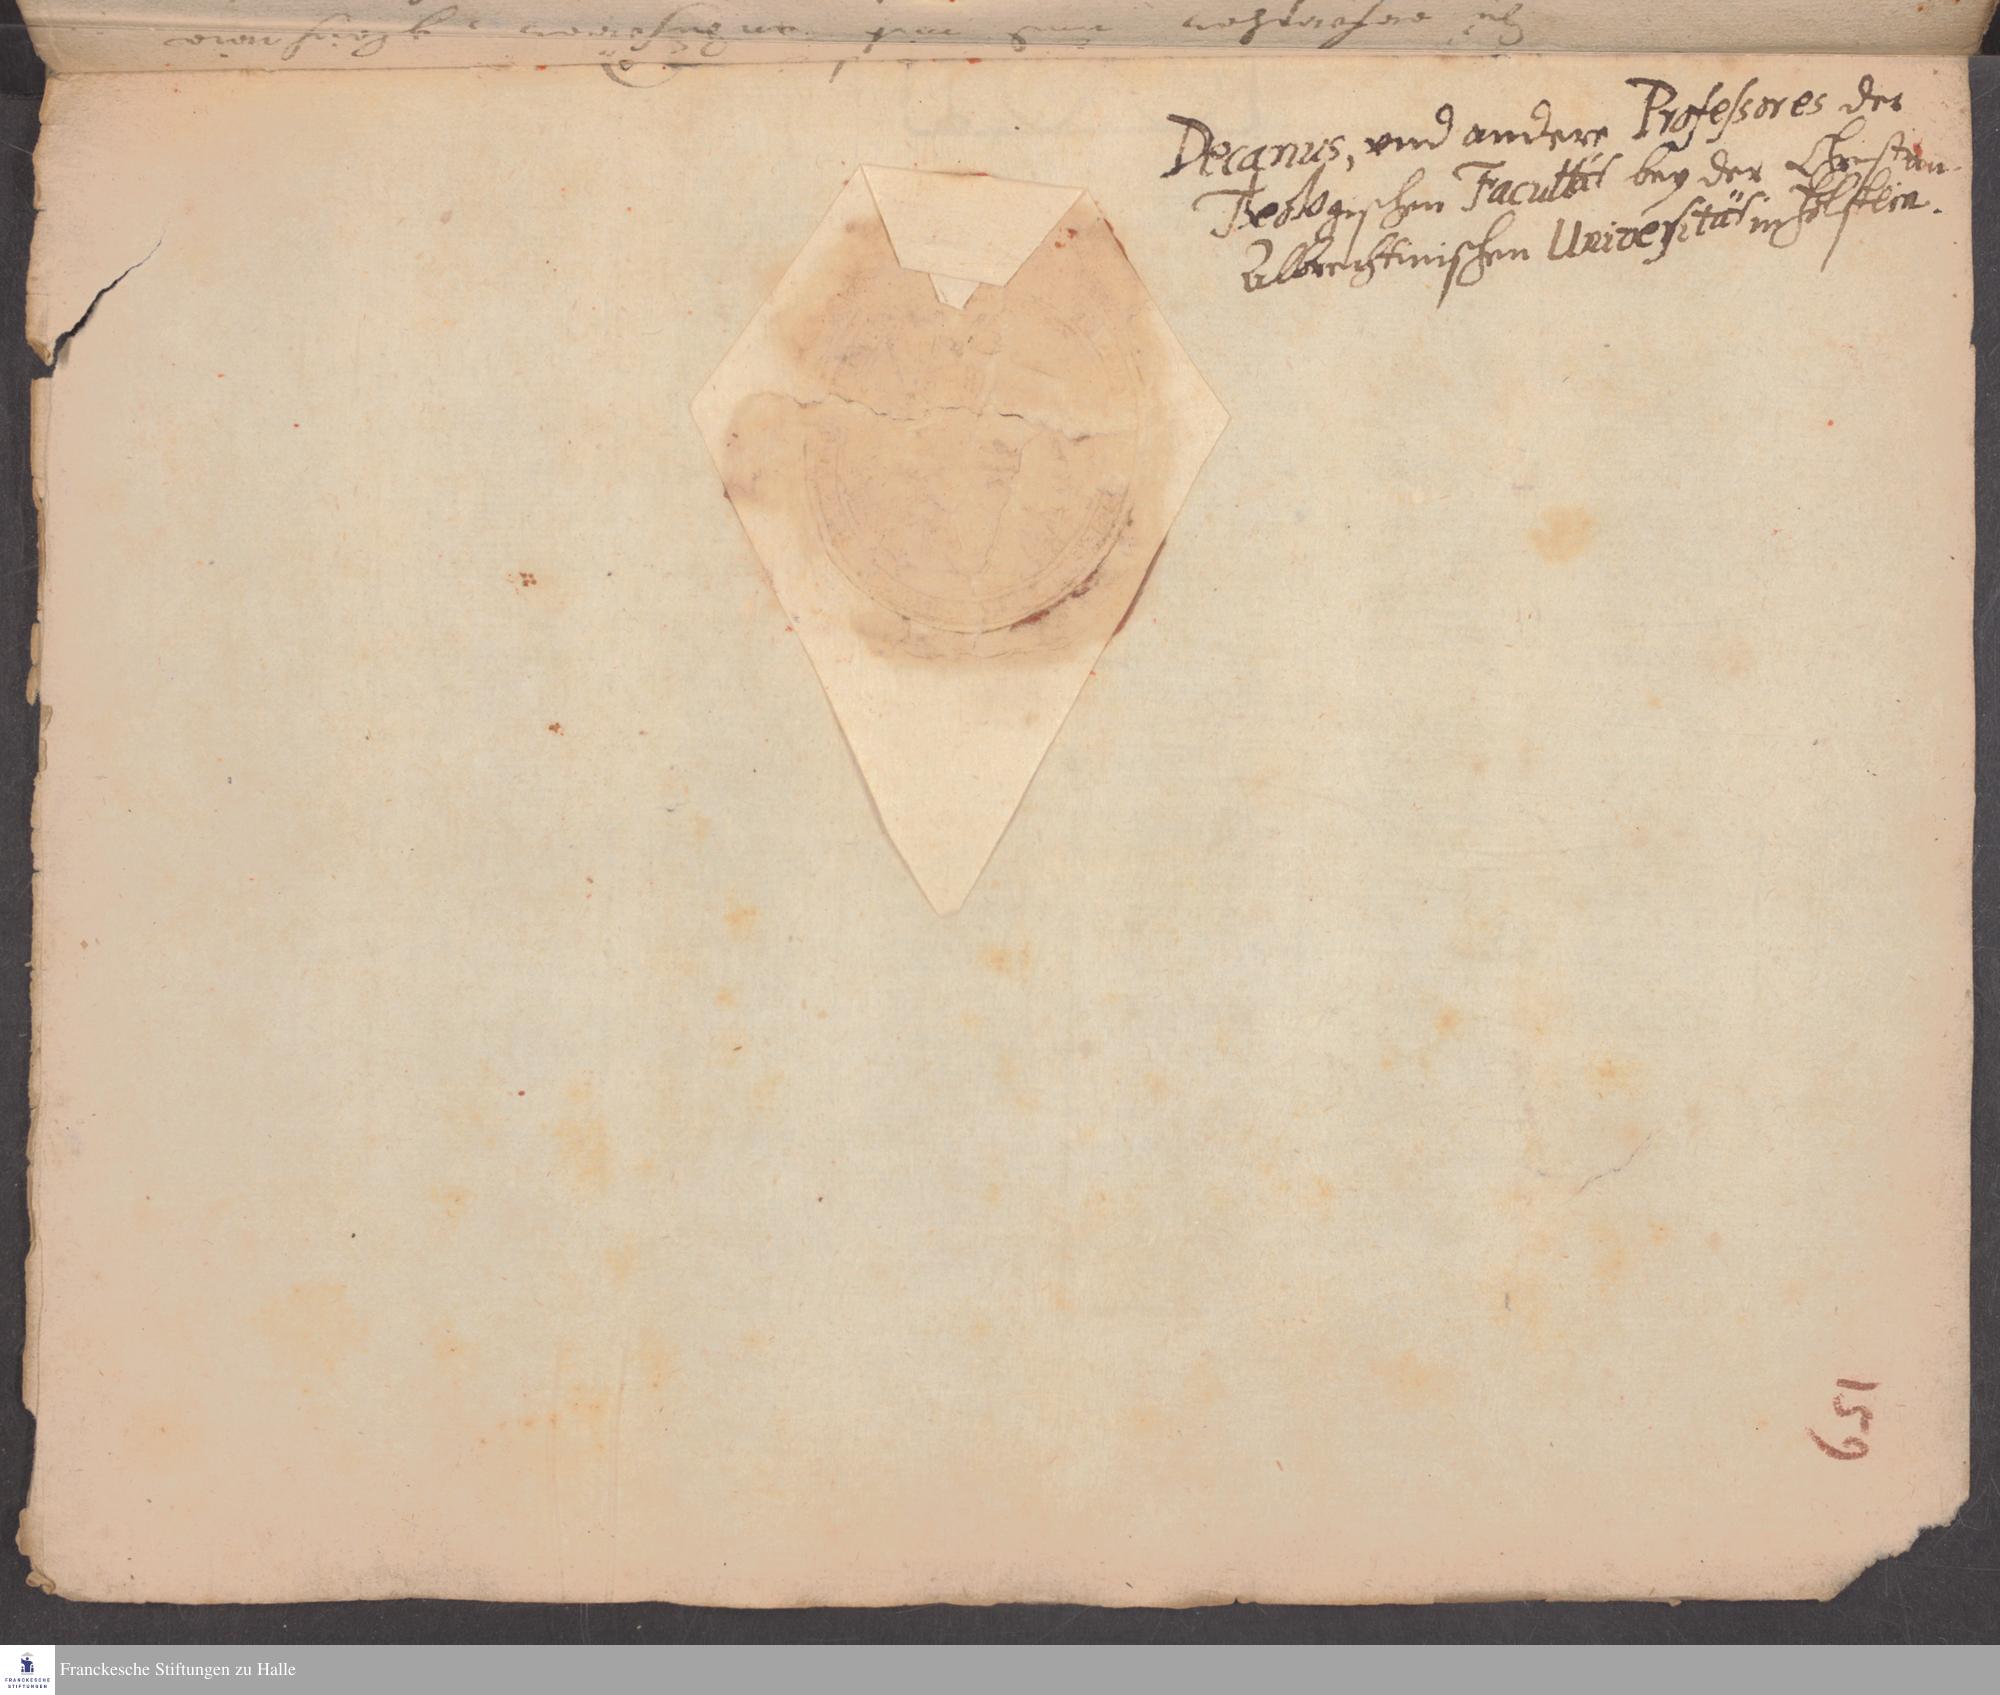 Decanus, vnd andere Professores der
Theologischen Facultät bey der Christian-
Albrechtinischen Universität in Holstein.
651
Franckesche Stiftungen zu Halle
FRANCKESCHE
STIFTUNGEN